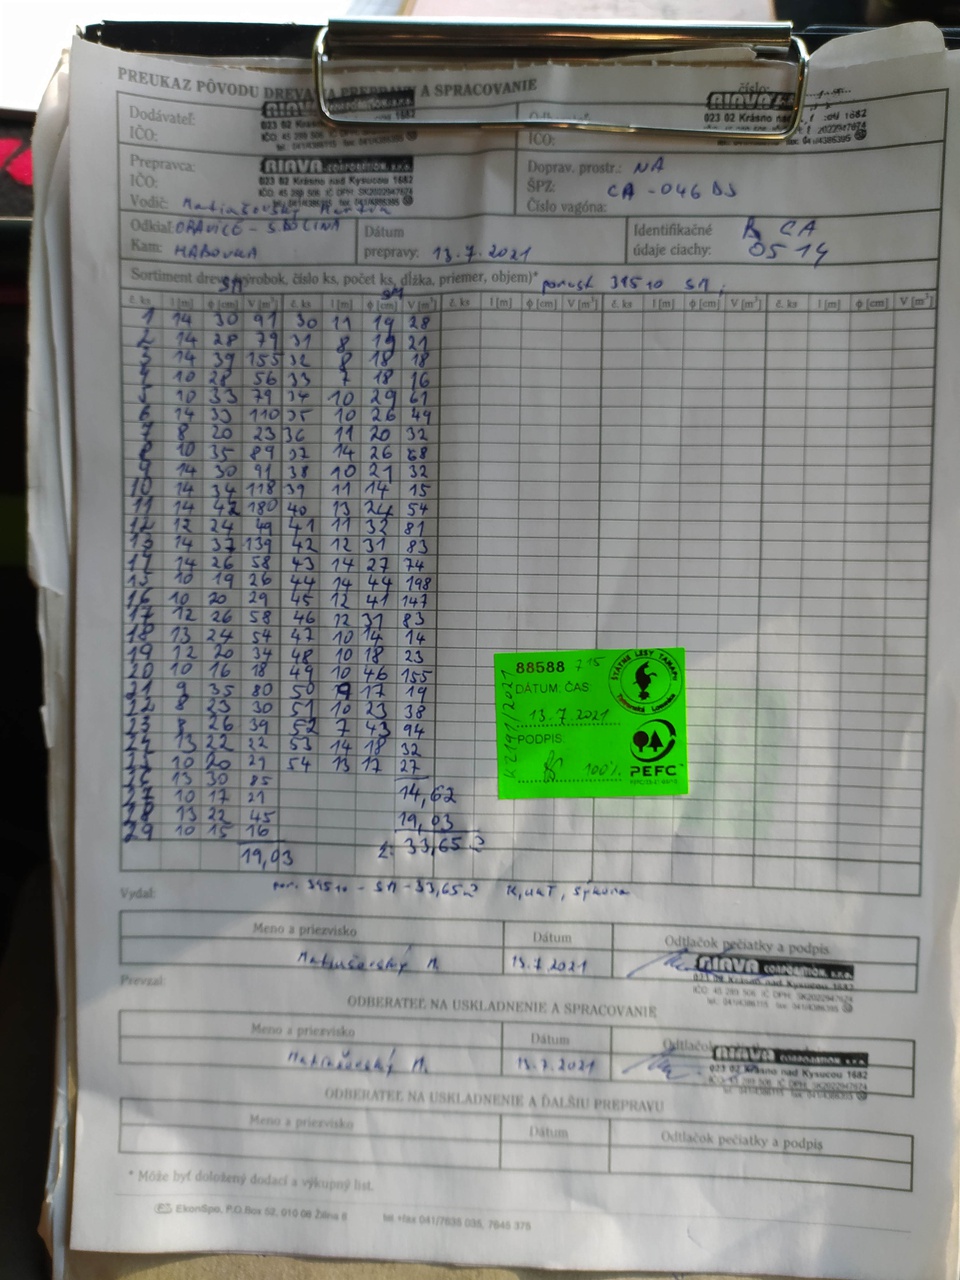 PREUKAZ PÔVODU DREVA NA PREPRAVU A SPRACOVANIE
číslo:
Dodávateľ:
RIAVA CORPORATION, s.r.o.
023 02 Krásno nad Kysucou 1682
IČO:
IČO: 45 289 506 IČ DPH: SK2022947674
tel.: 041/4386715 fax: 041/4386395
RIAVA
023 02 Krásno nad
IČO:
Prepravca:
RIAVA CORPORATION, s.r.o.
023 02 Krásno nad Kysucou 1682
IČO:
IČO: 45 289 506 IČ DPH: SK2022947674
Vodič: Matiašovský Martin
Doprav. prostr.: NA
ŠPZ: CA - 046 DJ
Číslo vagóna:
Odkiaľ: ORAVICE - S.DOLINA
Kam: HABOVKA
Dátum
prepravy: 13.7.2021
Identifikačné CA
údaje ciachy: 0514
Sortiment dreva (výrobok, číslo ks, počet ks, dĺžka, priemer, objem)* porast 31510 SM
SM SM
č. ks l [m] φ [cm] V [m³] č. ks l [m] φ [cm] V [m³] č. ks l [m] φ [cm] V [m³] č. ks l [m] φ [cm] V [m³] č. ks l [m] φ [cm] V [m³]
1 14 30 91 30 11 19 28
2 14 28 79 31 8 19 21
3 14 39 155 32 8 18 18
4 10 28 56 33 7 18 16
5 10 33 79 34 10 29 61
6 14 33 110 35 10 26 49
7 8 20 23 36 11 20 32
8 10 35 89 37 14 26 68
9 14 30 91 38 10 21 32
10 14 34 118 39 11 14 15
11 14 42 180 40 13 24 54
12 12 24 49 41 11 32 81
13 14 37 139 42 12 31 83
14 14 26 58 43 14 27 74
15 10 19 26 44 14 44 198
16 10 20 29 45 12 41 147
17 12 26 58 46 12 31 83
18 13 24 54 47 10 14 14
19 12 20 34 48 10 18 23
20 10 16 18 49 10 46 155
21 9 35 80 50 9 17 19
22 8 23 30 51 10 23 38
23 8 26 39 52 7 43 94
24 13 22 22 53 14 18 32
25 10 20 21 54 13 17 27
26 13 30 85
27 10 17 21 14,62
28 13 22 45 19,03
29 10 15 16
19,03 Σ: 33,65
88588 715
ŠTÁTNE LESY TANAPu
Tatranská Lomnica
DÁTUM: ČAS:
13.7.2021
PODPIS:
100%
PEFC
por. 31510 - SM - 33,65
Vydal:
Meno a priezvisko Dátum Odtlačok pečiatky a podpis
Matiašovský M. 13.7.2021
RIAVA CORPORATION, s.r.o.
023 02 Krásno nad Kysucou 1682
IČO: 45 289 506 IČ DPH: SK2022947674
tel.: 041/4386715 fax: 041/4386395
Prevzal:
ODBERATEĽ NA USKLADNENIE A SPRACOVANIE
Meno a priezvisko Dátum
Matiašovský M. 13.7.2021
RIAVA CORPORATION, s.r.o.
023 02 Krásno nad Kysucou 1682
IČO: 45 289 506 IČ DPH: SK2022947674
ODBERATEĽ NA USKLADNENIE A ĎALŠIU PREPRAVU
Meno a priezvisko Dátum Odtlačok pečiatky a podpis
* Môže byť doložený dodací a výkupný list.
EkonŠpo, P.O.Box 52, 010 08 Žilina 8 tel.+fax 041/7635 035, 7645 375